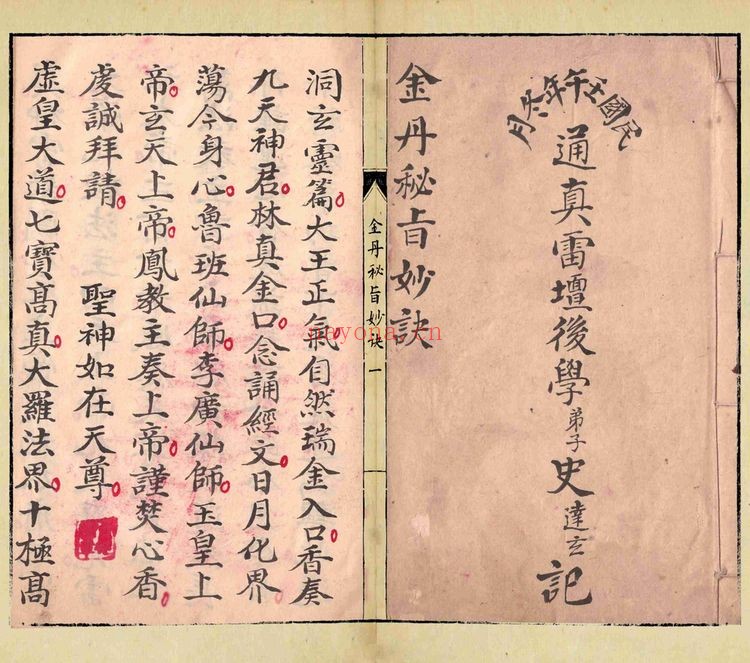 民國壬午年六月
通真雷壇後學弟子史達玄記
金丹秘旨妙訣
金丹秘旨妙訣 一
洞玄靈篇大王正氣自然瑞金入口香奏
九天神君林真金口念誦經文日月化界
蕩今身心魯班仙師李廣仙師玉皇上
帝玄天上帝鳳教主奏上帝謹焚心香
虔誠拜請 聖神如在天尊
虛皇大道七寶高真大羅法界十極高